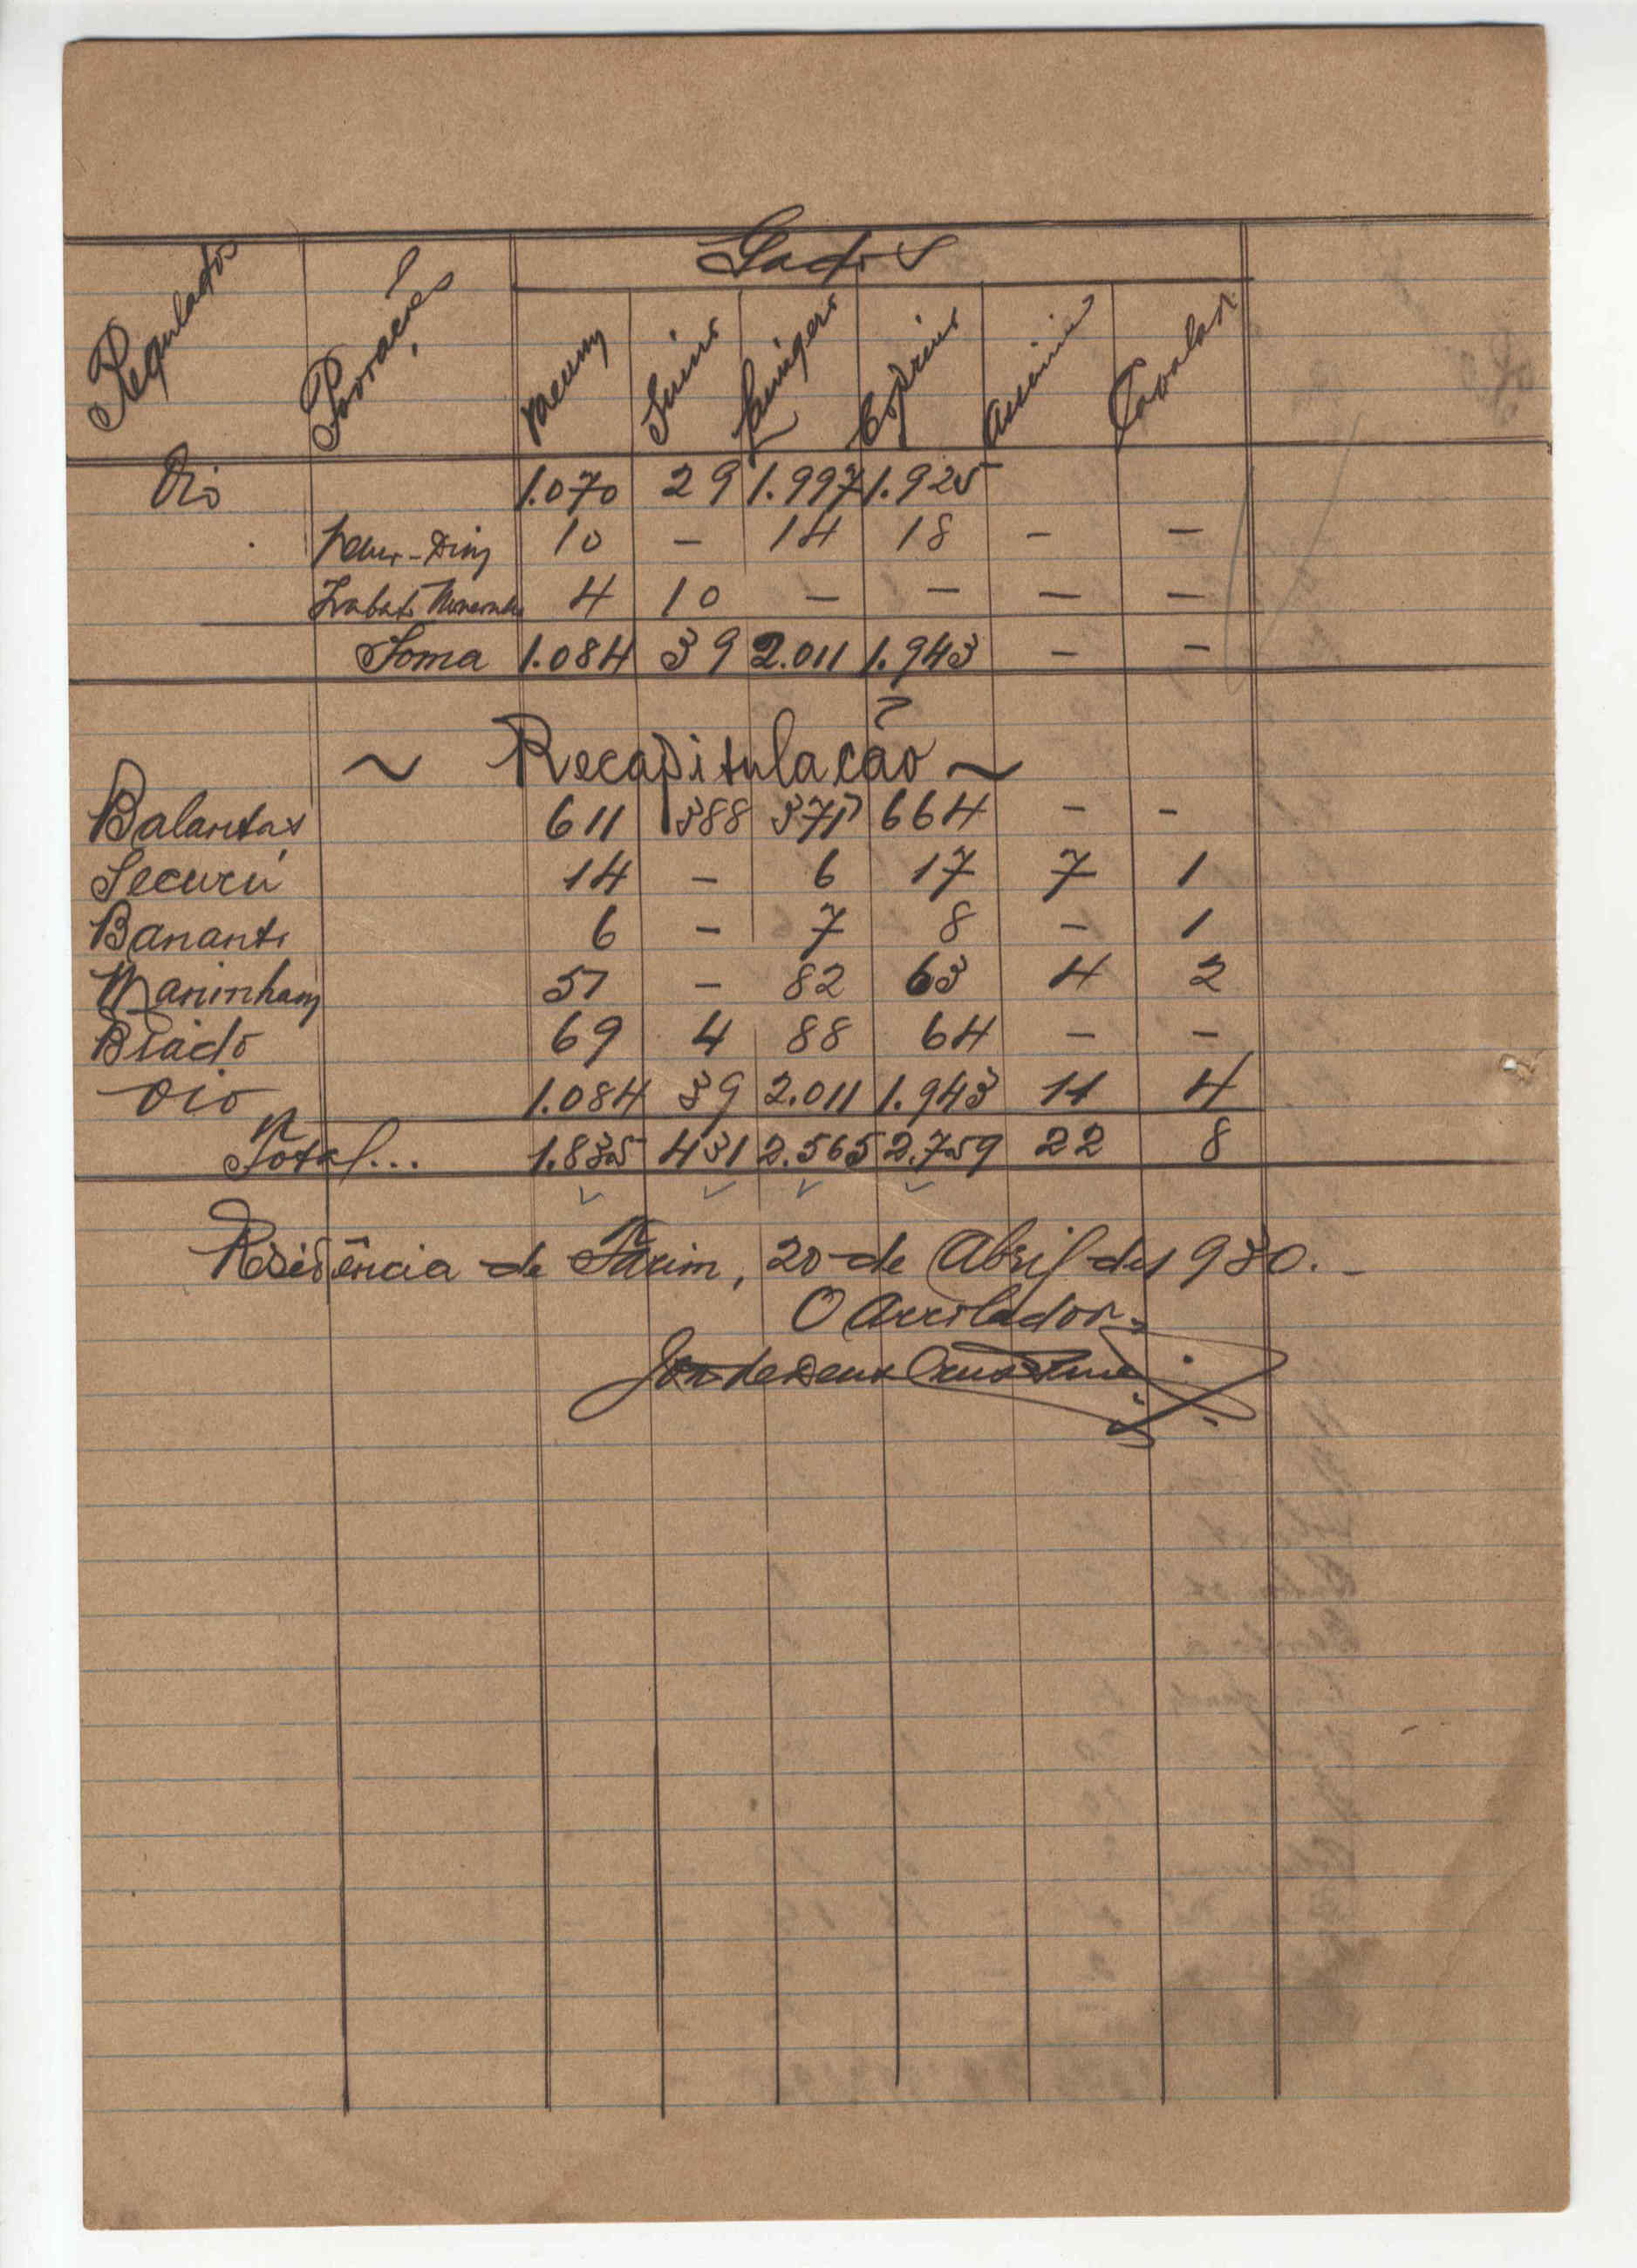 Gados
Regulados Povoações Vacum Suino Lanigero Caprino Asinino Cavalar
Oio 1.070 29 1.997 1.925
10 - 14 18 - -
4 10 - - - -
Soma 1.084 39 2.011 1.943 - -
~ Recapitulação ~
Balantas 611 388 371 664 - -
Lecurú 14 - 6 17 7 1
Bananto 6 - 7 8 - 1
51 - 82 63 4 2
Biado 69 4 88 64 - -
Oio 1.084 39 2.011 1.943 11 4
Total... 1.835 431 2.565 2.759 22 8
Residência de Farim, 20 de Abril de 1930.-
O Arrolador,
de Deus